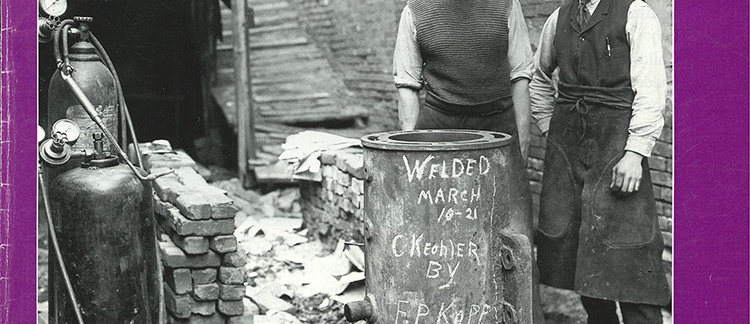 WELDED
MARCH
10-21
C KEOHLER
BY
F.P. KAPP